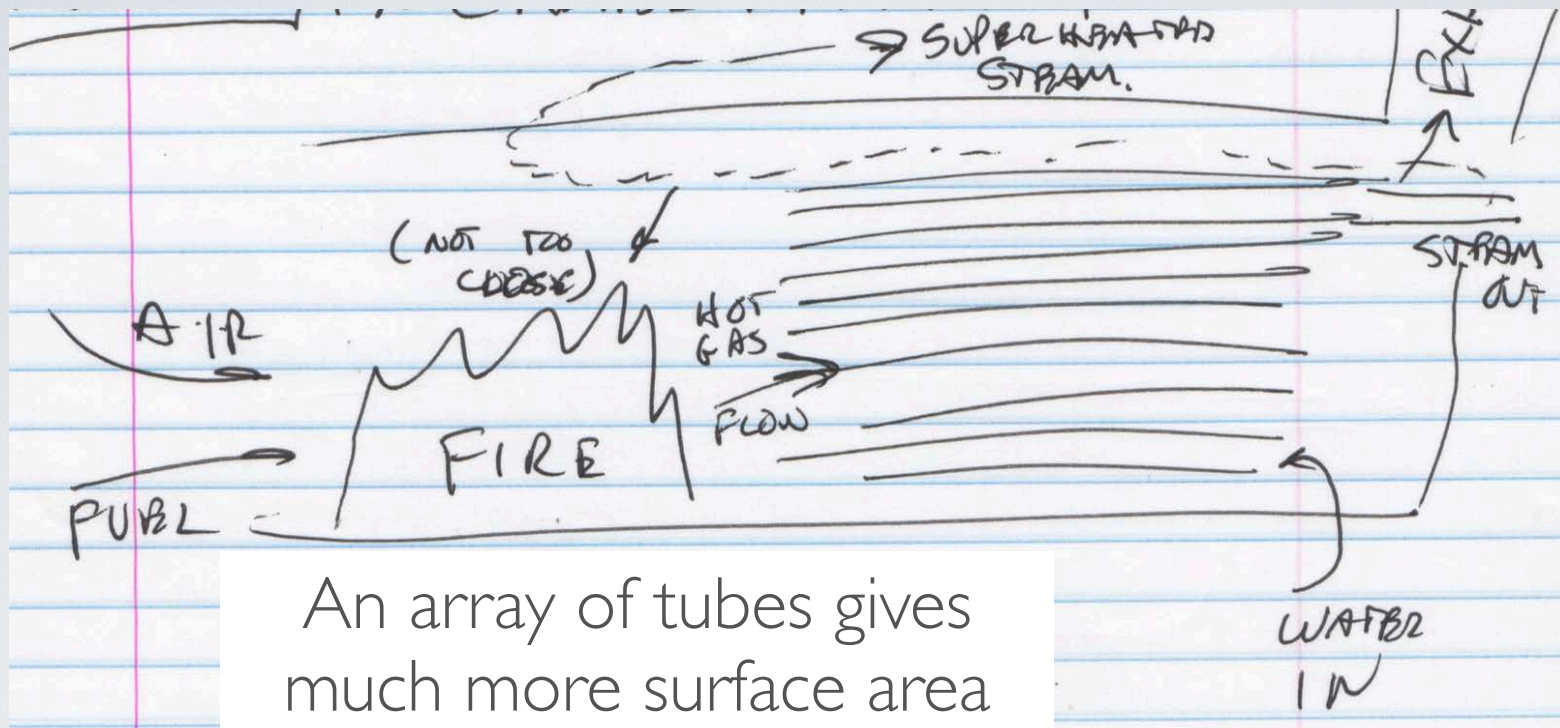 SUPER HEATED
STEAM.
(NOT TOO
CLOSE)
AIR
HOT
GAS
FLOW
FIRE
FUEL
STEAM
OUT
WATER
IN
An array of tubes gives
much more surface area